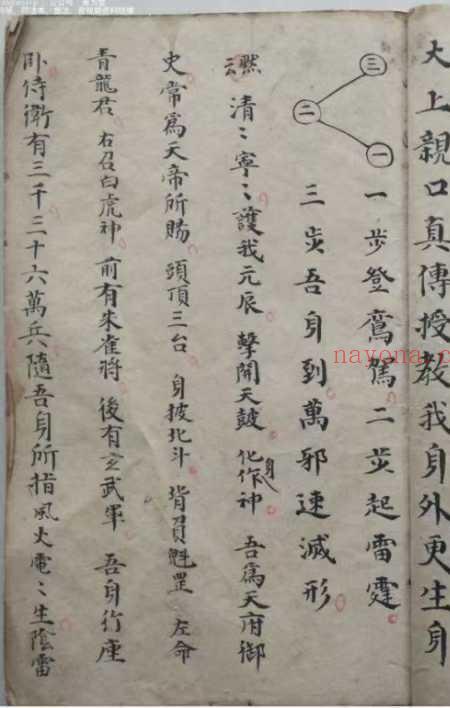 大上親口真傳授教我身外更生身
三
二
一
一步登鸞駕二步起雷霆
三步吾身到萬邪速滅形
燃 清〻寧〻護我元辰 擊開天鼓 化作身神 吾爲天府御
史常爲天帝所賜 頭頂三台 身披北斗 背負魁罡 左命
青龍君 右召白虎神 前有朱雀將 後有玄武軍 吾身行座
卧侍衛有三千三十六萬兵隨吾身所指風火電〻生陰雷
nayona.cn